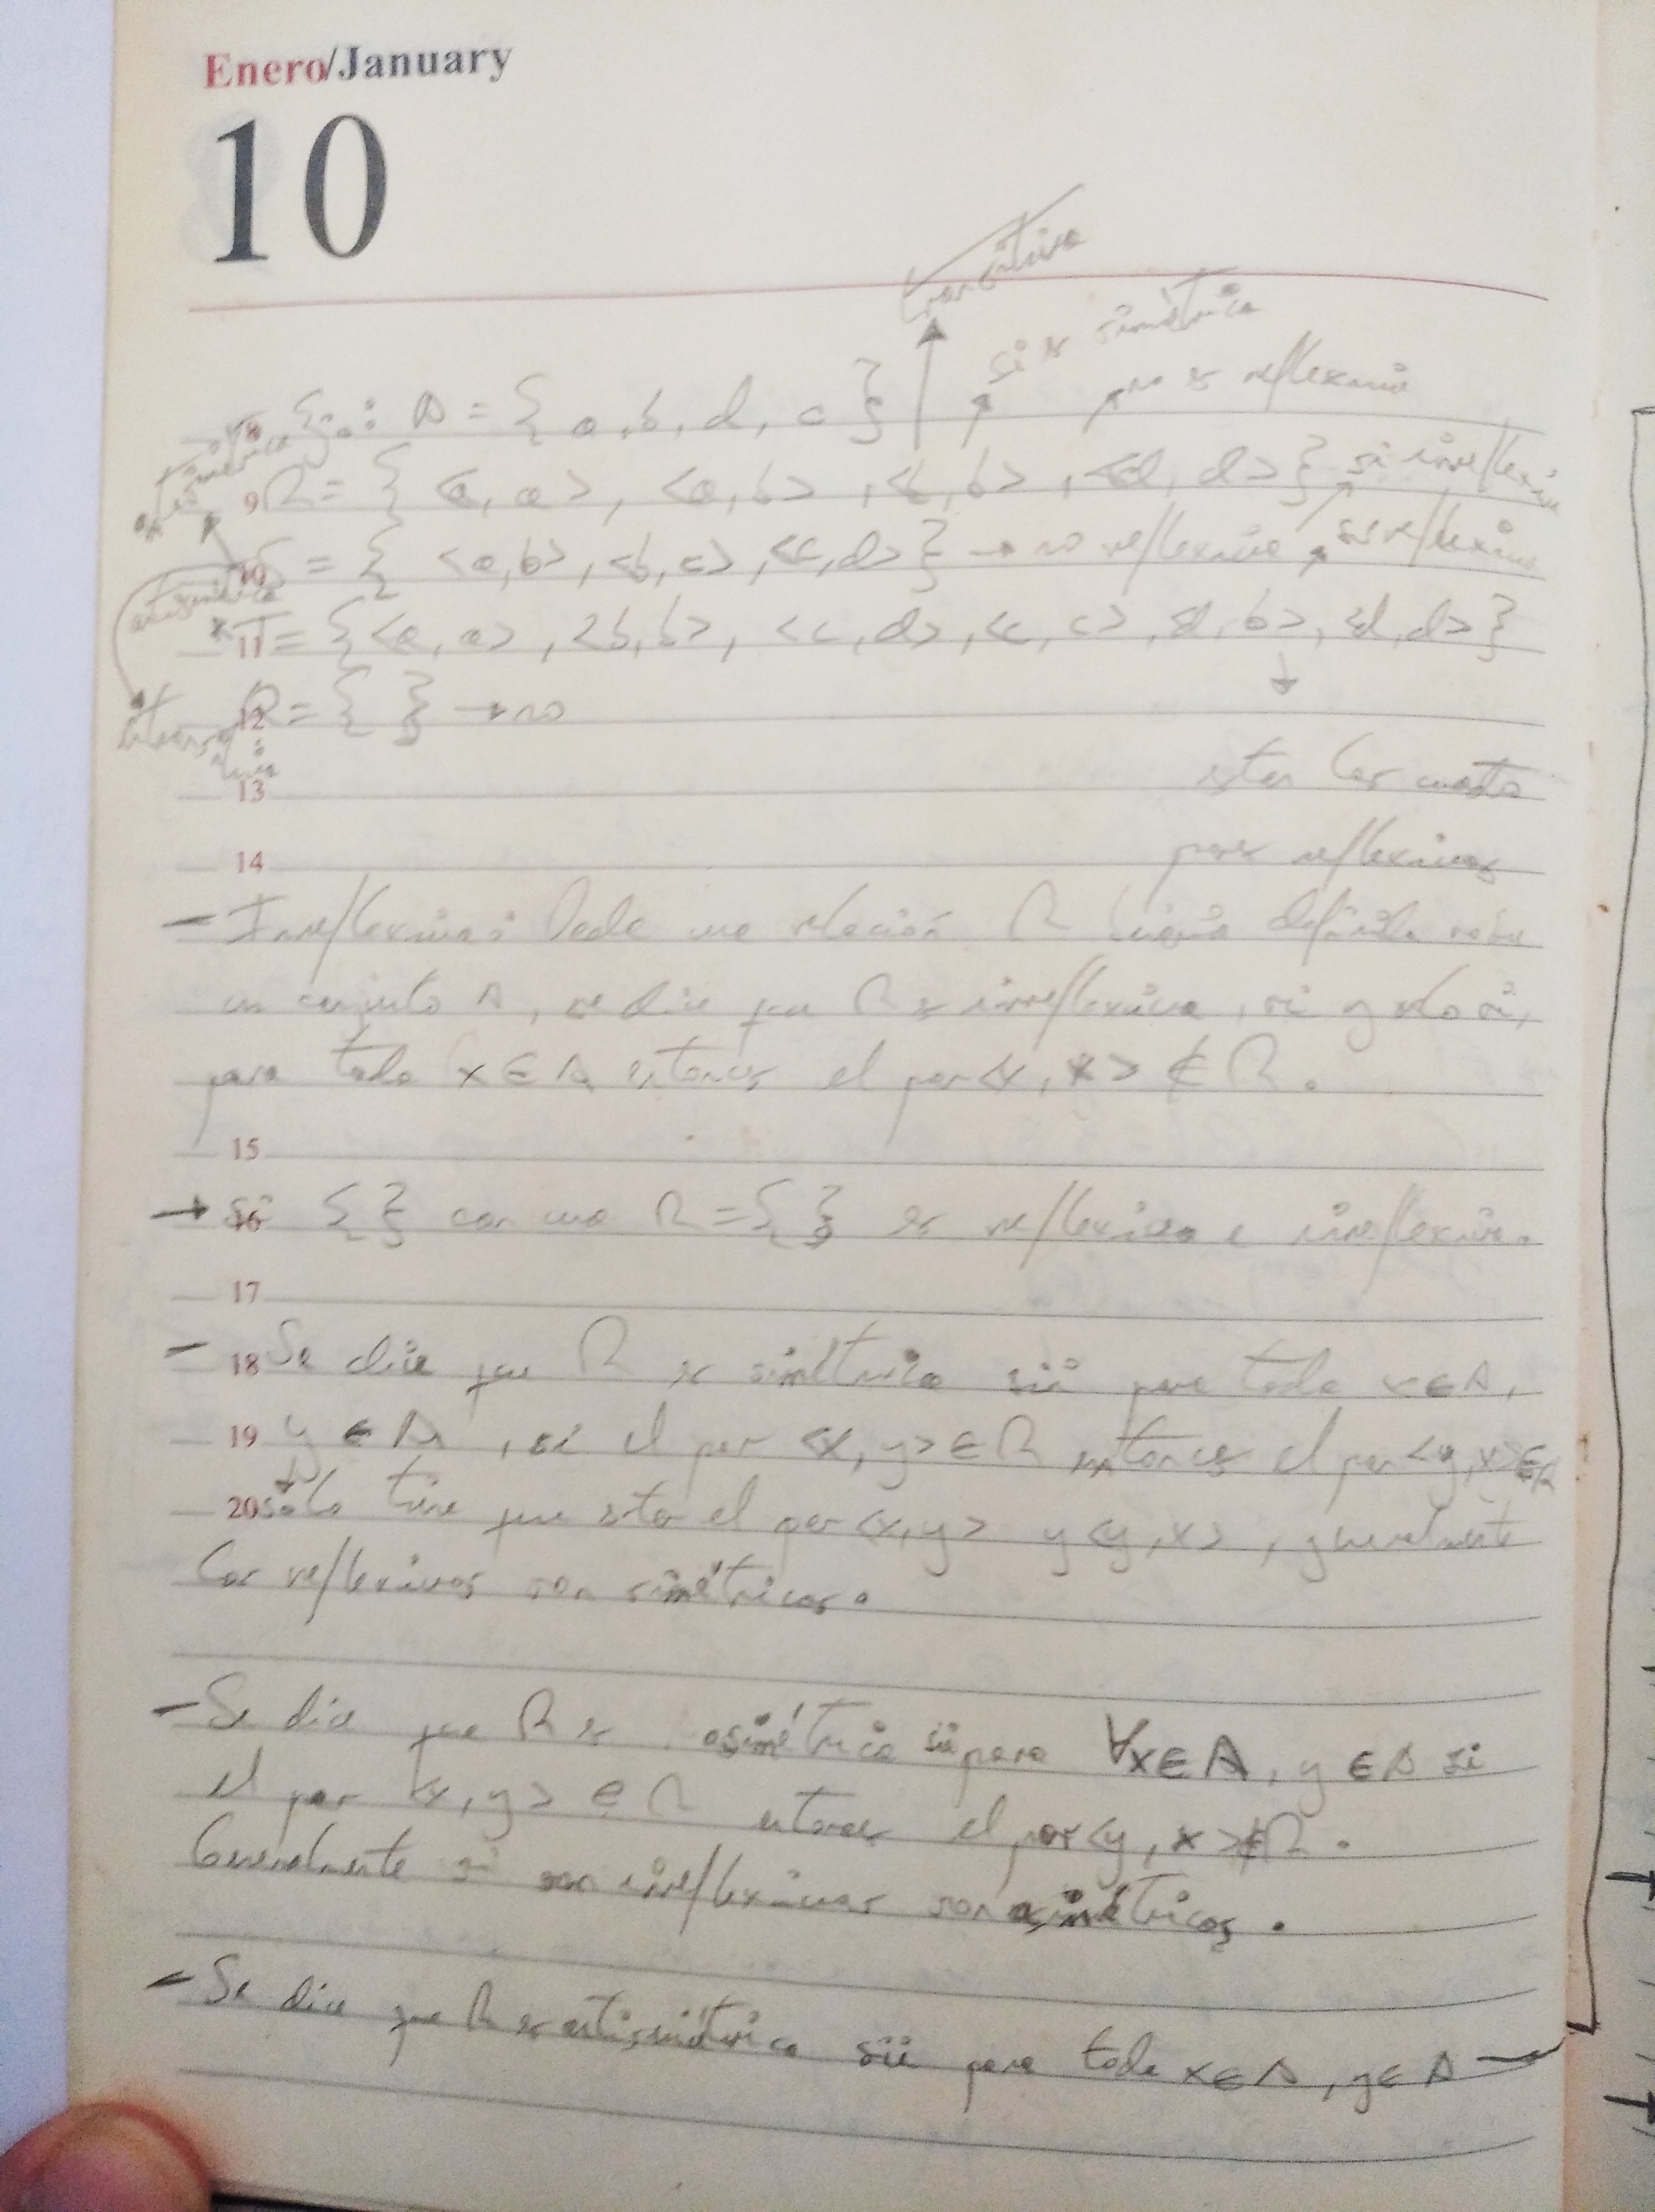 Enero/January
10
transitiva
si es simétrica
no es reflexiva
8 Ej.: A = { a, b, d, c }
asimétrica
9 R = { <a, a>, <a, b>, <b, b>, <d, d> } si irreflexiva
10 S = { <a, b>, <b, c>, <c, d> } → no reflexiva, es reflexiva
antisimétrica
* 11 T = { <a, a>, <b, b>, <c, d>, <c, c>, <d, b>, <d, d> }
12 R = { } → no
13 estan los cuatro
14 pares reflexivos
- Irreflexiva: Dada una relación R binaria definida sobre
un conjunto A, se dice que R es irreflexiva, si y solo si,
para todo x ∈ A entonces el par <x, x> ∉ R.
15
→ 16 Si { } con una R = { } es reflexiva e irreflexiva.
17
- 18 Se dice que R es simétrica sii para todo x ∈ A,
19 y ∈ A, si el par <x, y> ∈ R entonces el par <y, x> ∈ R
20 sólo tiene que estar el par <x, y> y <y, x>, generalmente
los reflexivos son simétricos.
- Se dice que R es asimétrica sii para ∀x ∈ A, y ∈ A si
el par <x, y> ∈ R entonces el par <y, x> ∉ R.
Generalmente si son irreflexivas son asimétricos.
- Se dice que R es antisimétrica sii para todo x ∈ A, y ∈ A